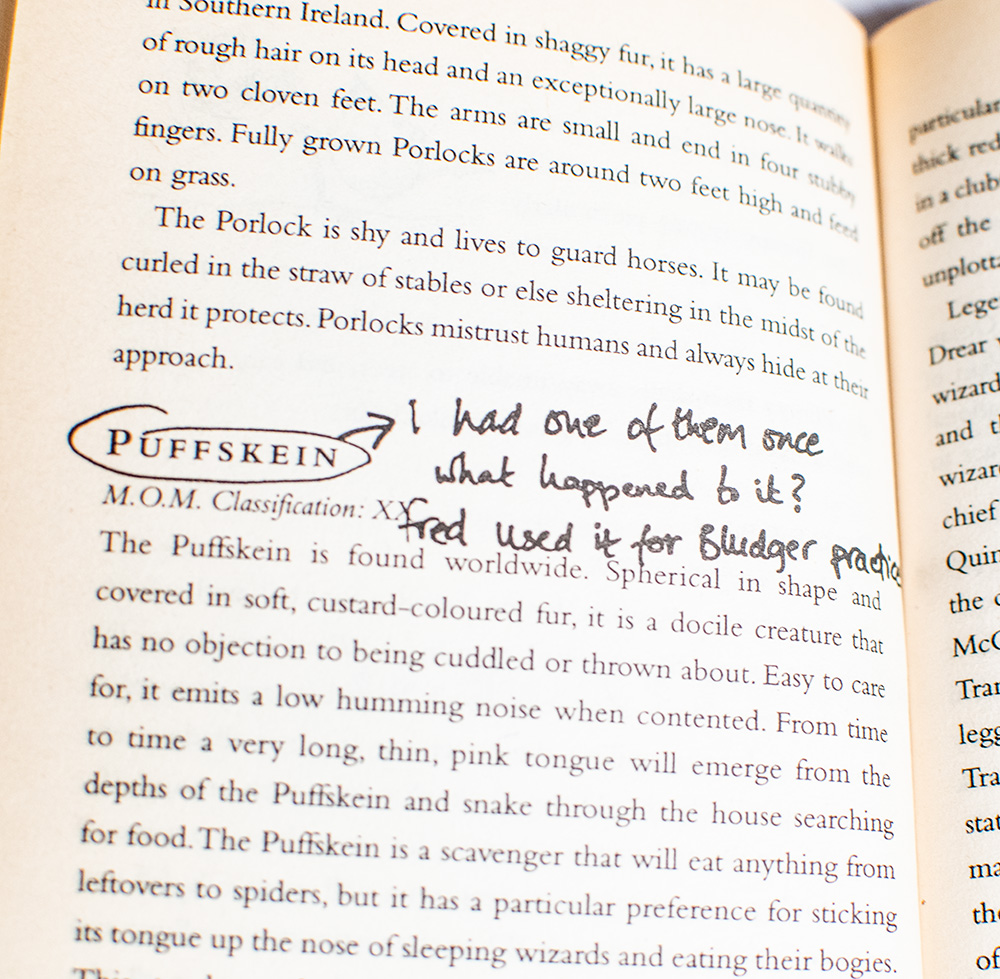 in Southern Ireland. Covered in shaggy fur, it has a large quantity
of rough hair on its head and an exceptionally large nose. It walks
on two cloven feet. The arms are small and end in four stubby
fingers. Fully grown Porlocks are around two feet high and feed
on grass.
The Porlock is shy and lives to guard horses. It may be found
curled in the straw of stables or else sheltering in the midst of the
herd it protects. Porlocks mistrust humans and always hide at their
approach.
PUFFSKEIN
I had one of them once
what happened to it?
M.O.M. Classification: XX
fred used it for Bludger practice
The Puffskein is found worldwide. Spherical in shape and
covered in soft, custard-coloured fur, it is a docile creature that
has no objection to being cuddled or thrown about. Easy to care
for, it emits a low humming noise when contented. From time
to time a very long, thin, pink tongue will emerge from the
depths of the Puffskein and snake through the house searching
for food. The Puffskein is a scavenger that will eat anything from
leftovers to spiders, but it has a particular preference for sticking
its tongue up the nose of sleeping wizards and eating their bogies.
particular
thick red
in a club
off the
unplotta
Lege
Drear
wizard
and
wizar
chief
Quin
the
McC
Tran
legg
Tra
stat
ma
the
of